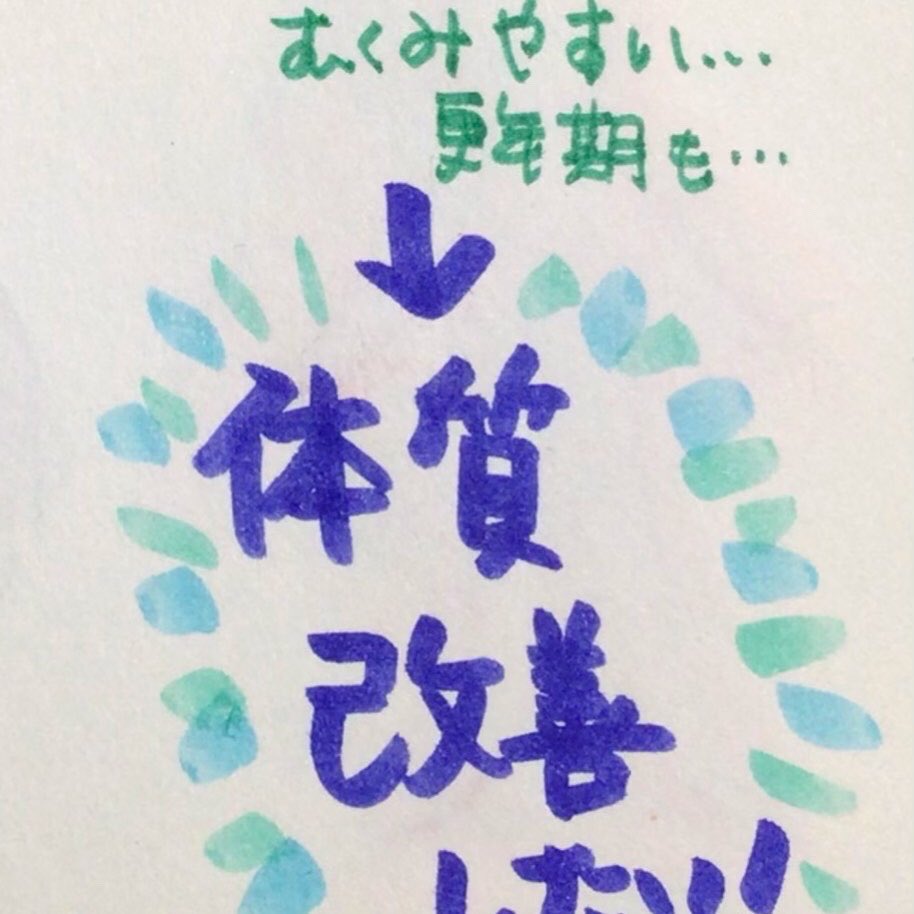 むくみやすい…
更年期も…
体質
改善
したい!!